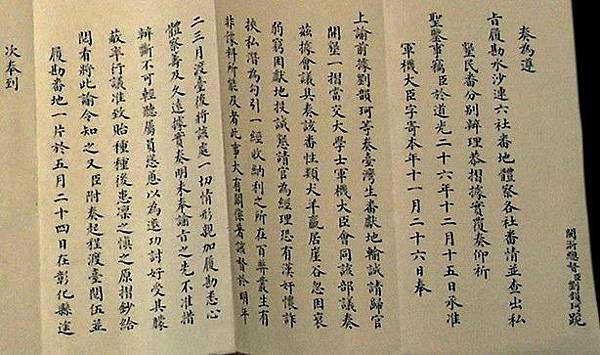 閩浙總督臣劉韻珂跪
奏為遵
旨履勘水沙連六社番地體察各社番情並查出私
墾民番分別辦理恭摺據實覆奏仰祈
聖鑒事竊臣於道光二十六年十二月十五日承准
軍機大臣字寄本年十一月二十六日奉
上諭前據劉韻珂等奏臺灣生番獻地輸誠請歸官
開墾一摺當交大學士軍機大臣會同該部議奏
茲據會議具奏該番性類犬羊居崖谷忽因衰
弱窮困獻地投誠懇請官為經理恐有漢奸懷詐
挾私潛為勾引一經收納利之所在百弊叢生有
非料所能及者此事大有關係著該督於明年
二三月渡臺後將該處一切情形親加履勘悉心
體察籌及久遠據實奏明未奉諭旨之先不准措
辦斷不可輕聽屬員慫恿以為邀功討好受其朦
蔽率行議准致貽種種後患凜之慎之原摺鈔給
閱看將此諭令知之又臣附奏起程渡臺閱伍並
履勘番地一片於五月二十四日在彰化縣途
次奉到